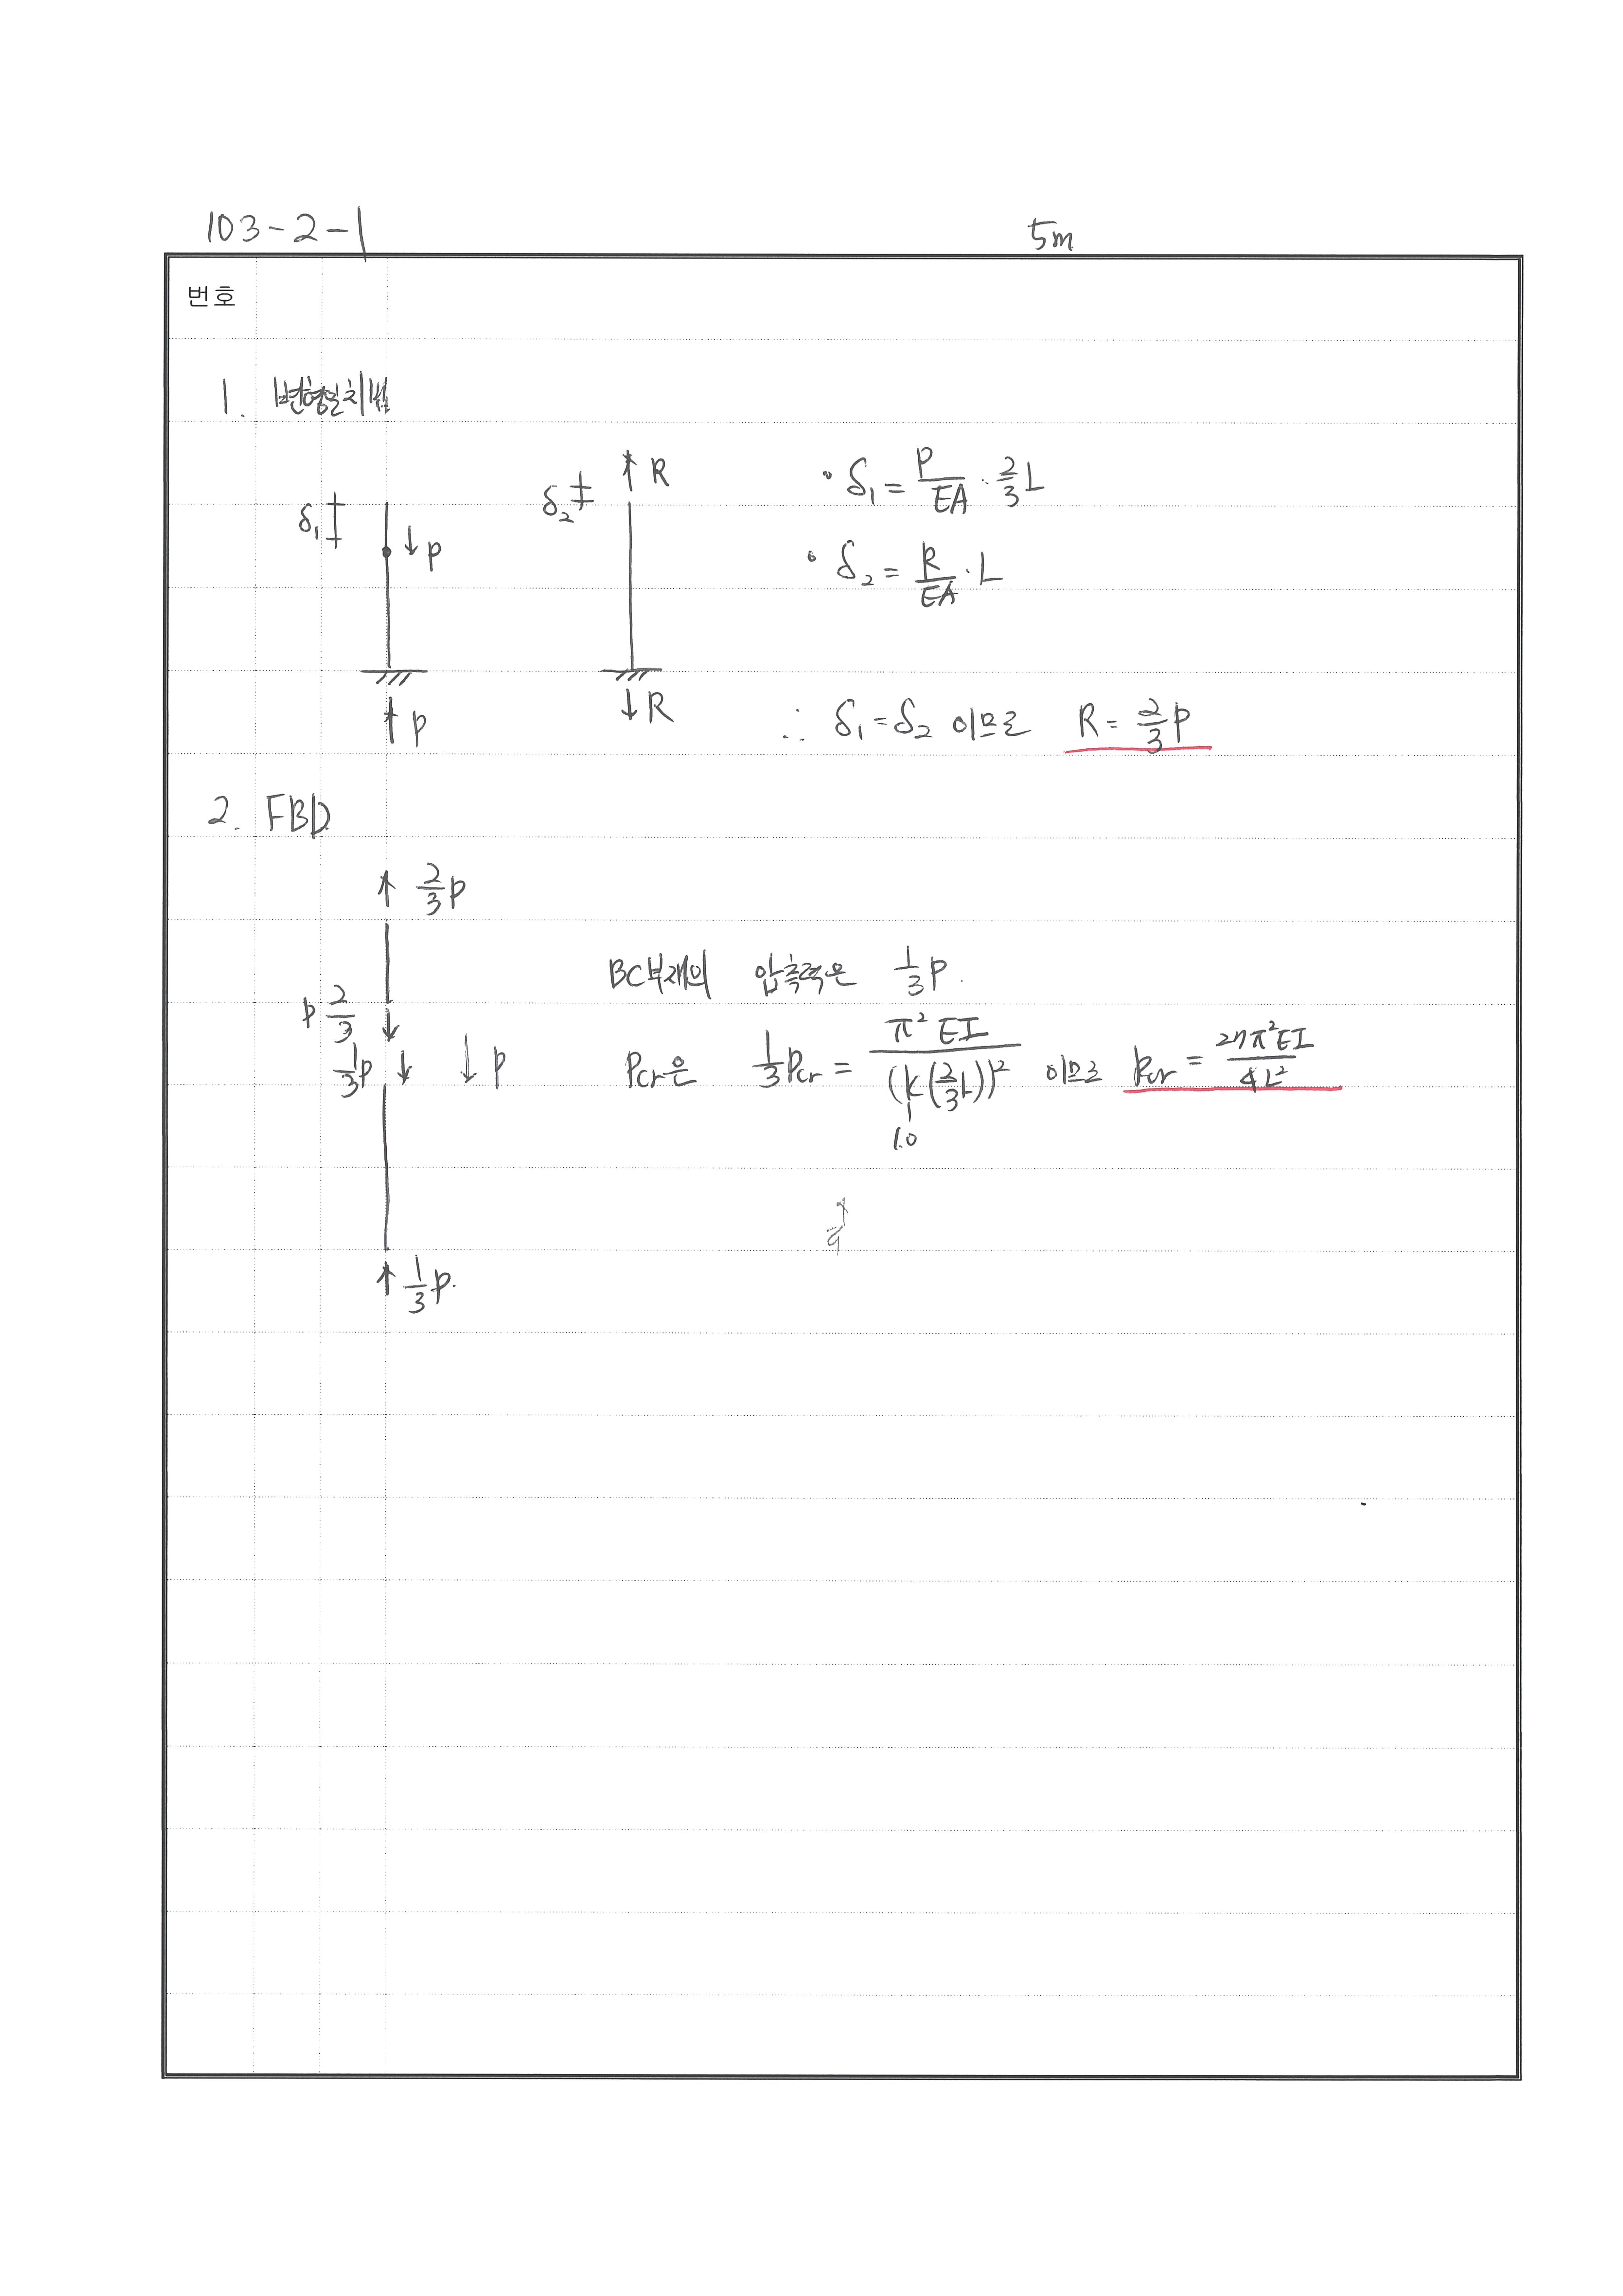 103-2-1
5m
번호
1. 변형일치법
δ₁ ↓ P ↑ P
δ₂ ↑ R ↓ R
• δ₁ = P/EA · 2/3 L
• δ₂ = R/EA · L
∴ δ₁ = δ₂ 이므로 R = 2/3 P
2. FBD
↑ 2/3 P
P 2/3 ↓
1/3 P ↓ ↓ P
↑ 1/3 P.
BC부재의 압축력은 1/3 P.
Pcr은 1/3 Pcr = π² EI / (k(2/3 L))² 이므로 Pcr = 27π²EI / 4L²
1.0